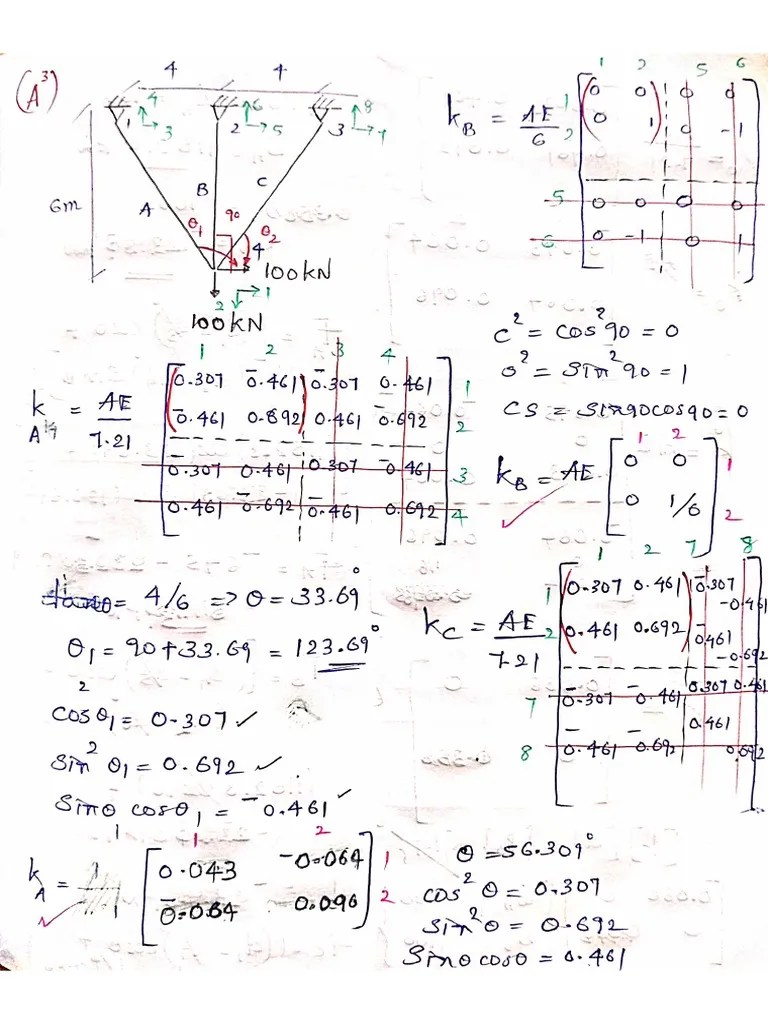 (A³)
4 4
4 6 8
1 3 2 5 3 7
6m
A B C
θ₁ 90 θ₂
4
100kN
2 1
100kN
k_B = AE/6
1 2 5 6
1 0 0 0 0
2 0 1 0 -1
5 0 0 0 0
6 0 -1 0 1
c² = cos²90 = 0
s² = sin²90 = 1
cs = sin90cos90 = 0
k_A = AE/7.21
1 2 3 4
0.307 -0.461 -0.307 0.461 1
-0.461 0.692 0.461 -0.692 2
-0.307 0.461 0.307 -0.461 3
0.461 -0.692 -0.461 0.692 4
k_B = AE
1 2
0 0 1
0 1/6 2
= 4/6 => θ = 33.69°
θ₁ = 90+33.69 = 123.69°
cos²θ₁ = 0.307 ✓
sin²θ₁ = 0.692 ✓
sinθ cosθ₁ = -0.461 ✓
k_C = AE/7.21
1 2 7 8
1 0.307 0.461 -0.307 -0.461
2 0.461 0.692 -0.461 -0.692
7 -0.307 -0.461 0.307 0.461
8 -0.461 -0.692 0.461 0.692
k_A =
1 2
0.043 -0.064 1
-0.064 0.096 2
θ = 56.309°
cos²θ = 0.307
sin²θ = 0.692
sinθcosθ = 0.461